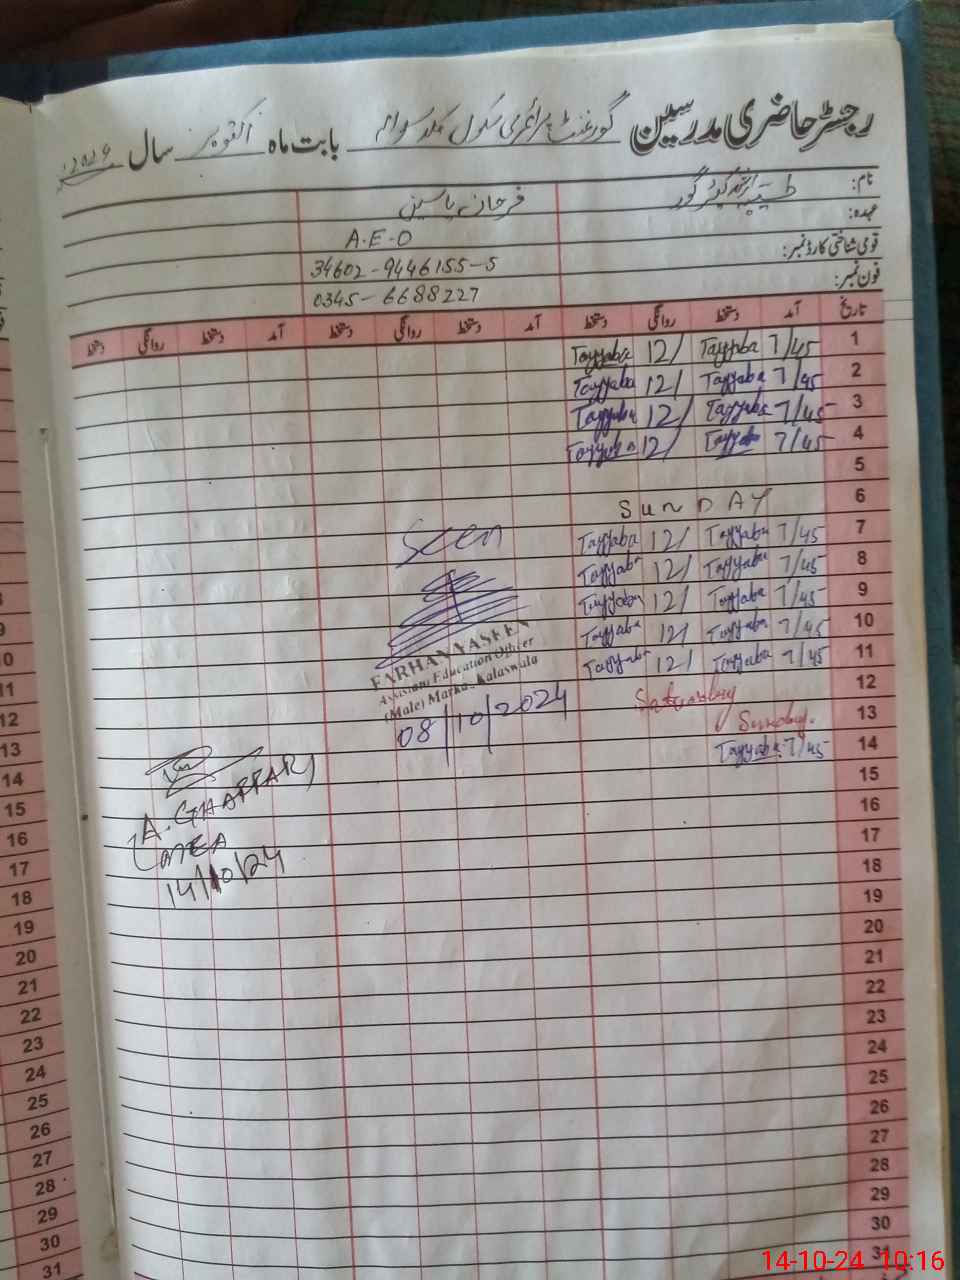 رجسٹر حاضری مدرسین گورنمنٹ پرائمری سکول بابت ماہ اکتوبر سال 2024
نام: فرحان یاسین
عہدہ: A.E.O
قومی شناختی کارڈ نمبر: 34602-9446155-5
فون نمبر: 0345-6688227
تاریخ آمد دستخط روانگی دستخط آمد دستخط روانگی دستخط آمد دستخط روانگی دستخط
1 7/45 Tayyaba 12/ Tayyaba
2 7/45 Tayyaba 12/ Tayyaba
3 7/45 Tayyaba 12/ Tayyaba
4 7/45 Tayyaba 12/ Tayyaba
5
6 SUNDAY
7 7/45 Tayyaba 12/ Tayyaba
Seen
8 7/45 Tayyaba 12/ Tayyaba
9 7/45 Tayyaba 12/ Tayyaba
10 7/45 Tayyaba 12/ Tayyaba
11 7/45 Tayyaba 12/ Tayyaba
FARHAN YASEEN
Assistant Education Officer
(Male) Markaz Kalaswala
08/10/2024
12 Saturday
13 Sunday.
14 7/45 Tayyaba
15
A. GHAFFAR
MEA
14/10/24
16
17
18
19
20
21
22
23
24
25
26
27
28
29
30
31
10
11
12
13
14
15
16
17
18
19
20
21
22
23
24
25
26
27
28
29
30
31
14-10-24 10:16